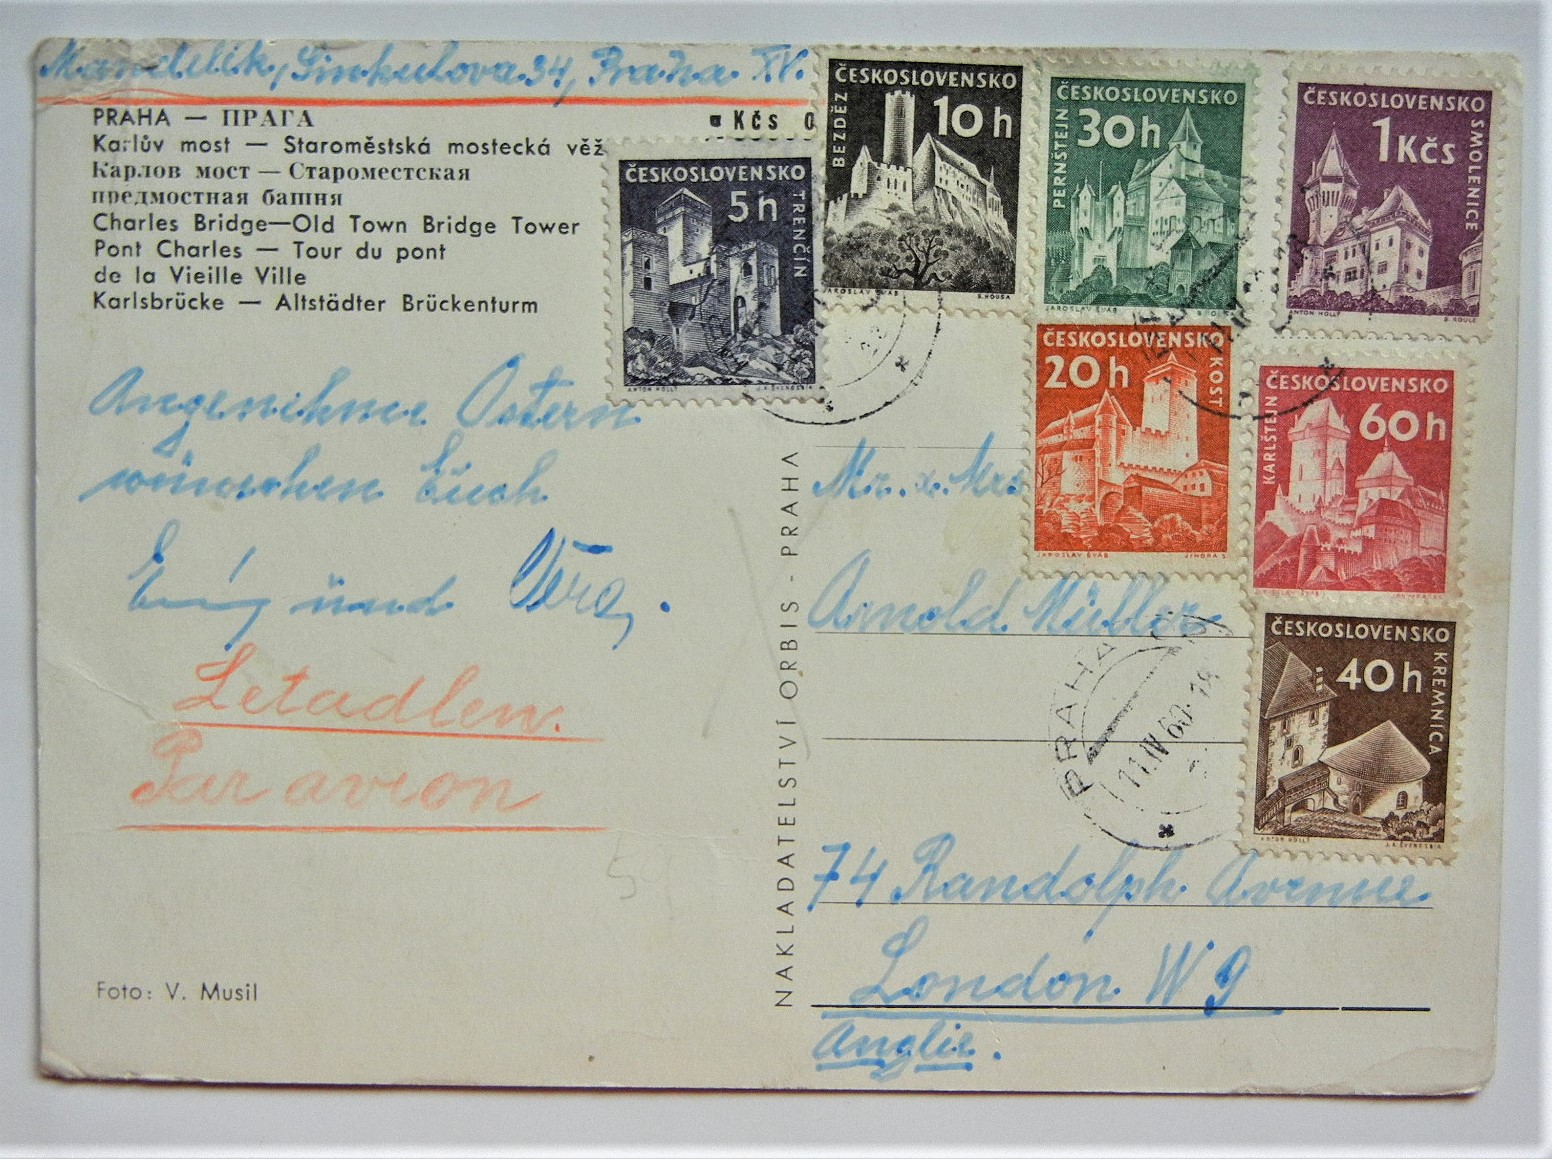 Mandelík, Sinkulova 34, Praha XV.
PRAHA — ПРАГА
Kčs 0
Karlův most — Staroměstská mostecká věž
Карлов мост — Староместская
предмостная башня
Charles Bridge—Old Town Bridge Tower
Pont Charles — Tour du pont
de la Vieille Ville
Karlsbrücke — Altstädter Brückenturm
Angenehme Ostern
wünschen Euch
und Věra.
Letadlem.
Par avion
Foto: V. Musil
NAKLADATELSTVÍ ORBIS - PRAHA
ČESKOSLOVENSKO
5h
TRENČÍN
ANTON HOLLÝ
ČESKOSLOVENSKO
10h
BEZDĚZ
JAROSLAV ŠVÁB
ČESKOSLOVENSKO
30h
PERNŠTEJN
JAROSLAV ŠVÁB
ČESKOSLOVENSKO
1Kčs
SMOLENICE
ANTON HOLLÝ
ČESKOSLOVENSKO
20h
KOST
JAROSLAV ŠVÁB
ČESKOSLOVENSKO
60h
KARLŠTEJN
ČESKOSLOVENSKO
40h
KREMNICA
ANTON HOLLÝ
PRAHA
11.IV.60
Mr. & Mrs
Arnold Müller
74 Randolph Avenue
London W 9
Anglie.